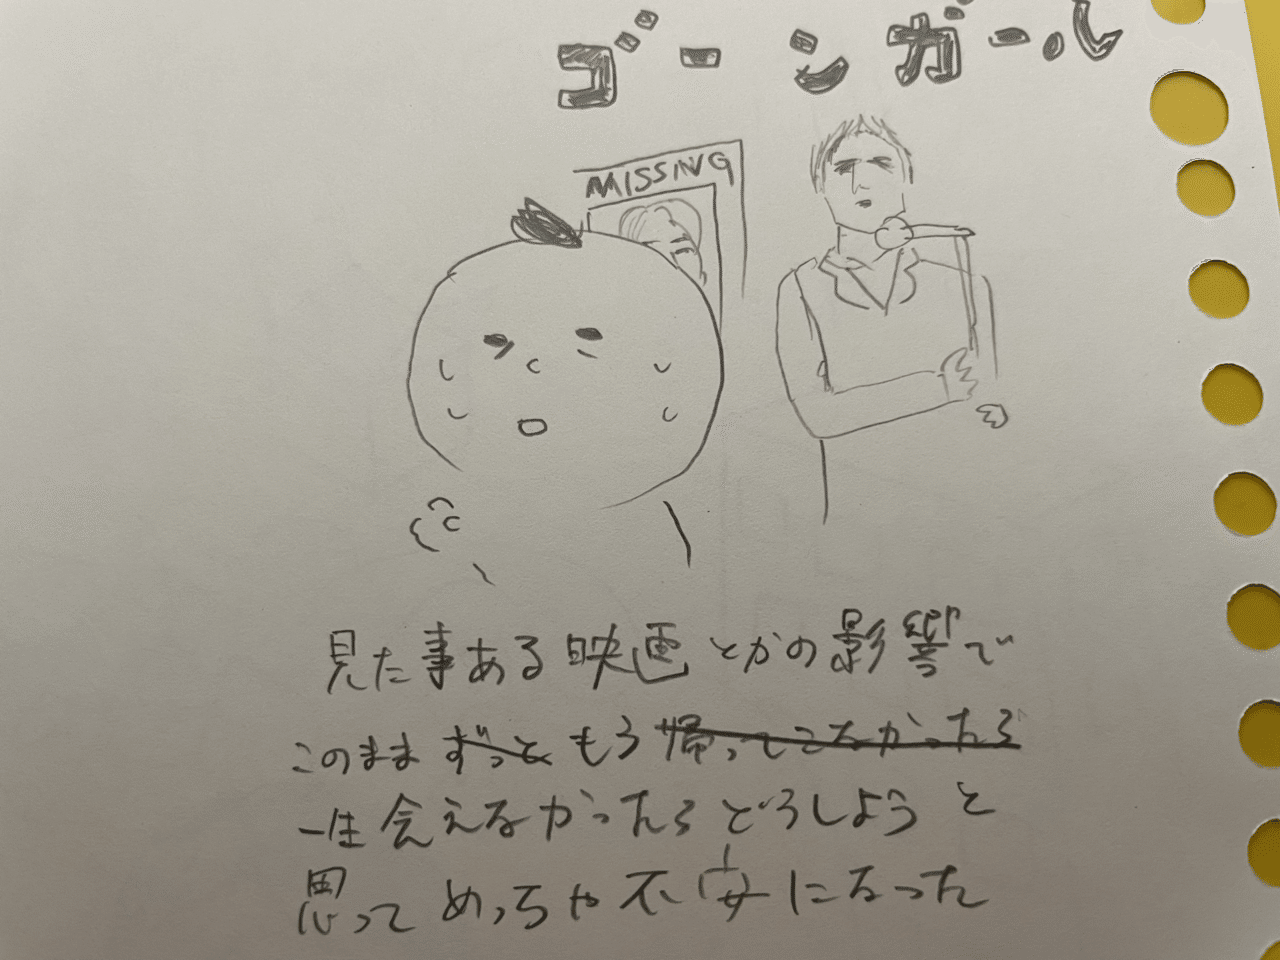 ゴーンガール
MISSING
見た事ある映画とかの影響で
このままずっともう帰ってこなかったら
一生会えなかったらどうしようと
思ってめっちゃ不安になった